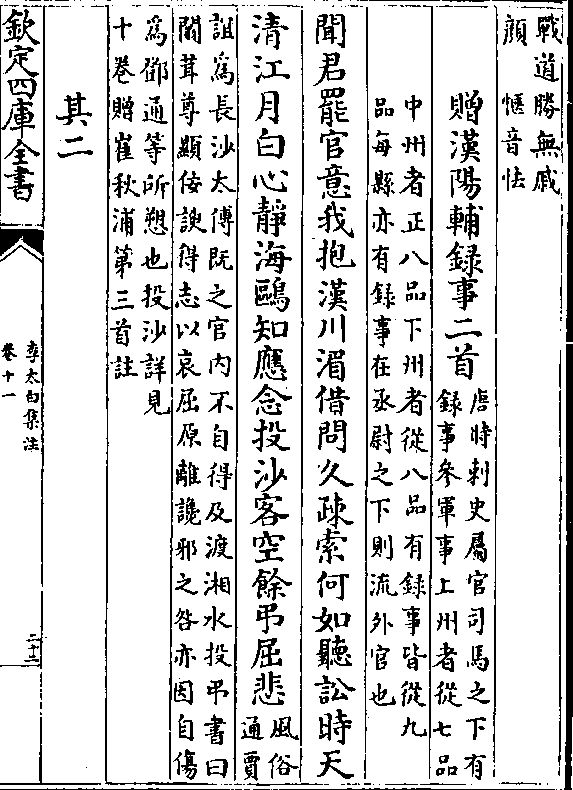 戰道勝無戚
顔愜音怯
贈漢陽輔録事二首
唐時刺史屬官司馬之下有
録事參軍事上州者從七品
中州者正八品下州者從八品有録事皆從九
品每縣亦有録事在丞尉之下則流外官也
聞君罷官意我抱漢川湄借問久疎索何如聽訟時天
清江月白心靜海鷗知應念投沙客空餘弔屈悲
風俗
通賈
誼爲長沙太傅既之官内不自得及渡湘水投弔書曰
闒茸尊顯佞諛得志以哀屈原離讒邪之咎亦因自傷
爲鄧通等所愬也投沙詳見
十巻贈崔秋浦第三首註
其二
欽定四庫全書
李太白集注
卷十一
二十二